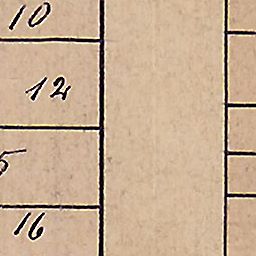 10
12
5
16